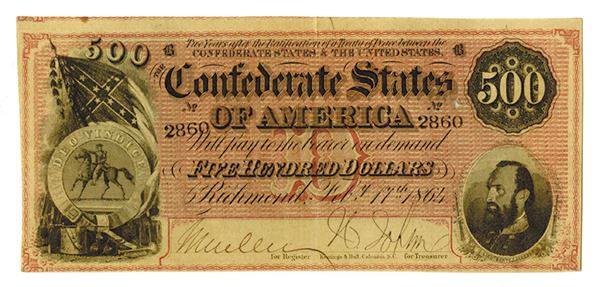 500
B
Two Years after the Ratification of a Treaty of Peace between the
CONFEDERATE STATES & THE UNITED STATES.
B
THE
Confederate States
500
No
OF AMERICA
No
2860
2860
Will pay to the bearer on demand
D
DEO VINDICE
FIVE HUNDRED DOLLARS
Richmond, Feb.y 17th 1864
for Register
Keatinge & Ball, Columbia, S.C.
for Treasurer